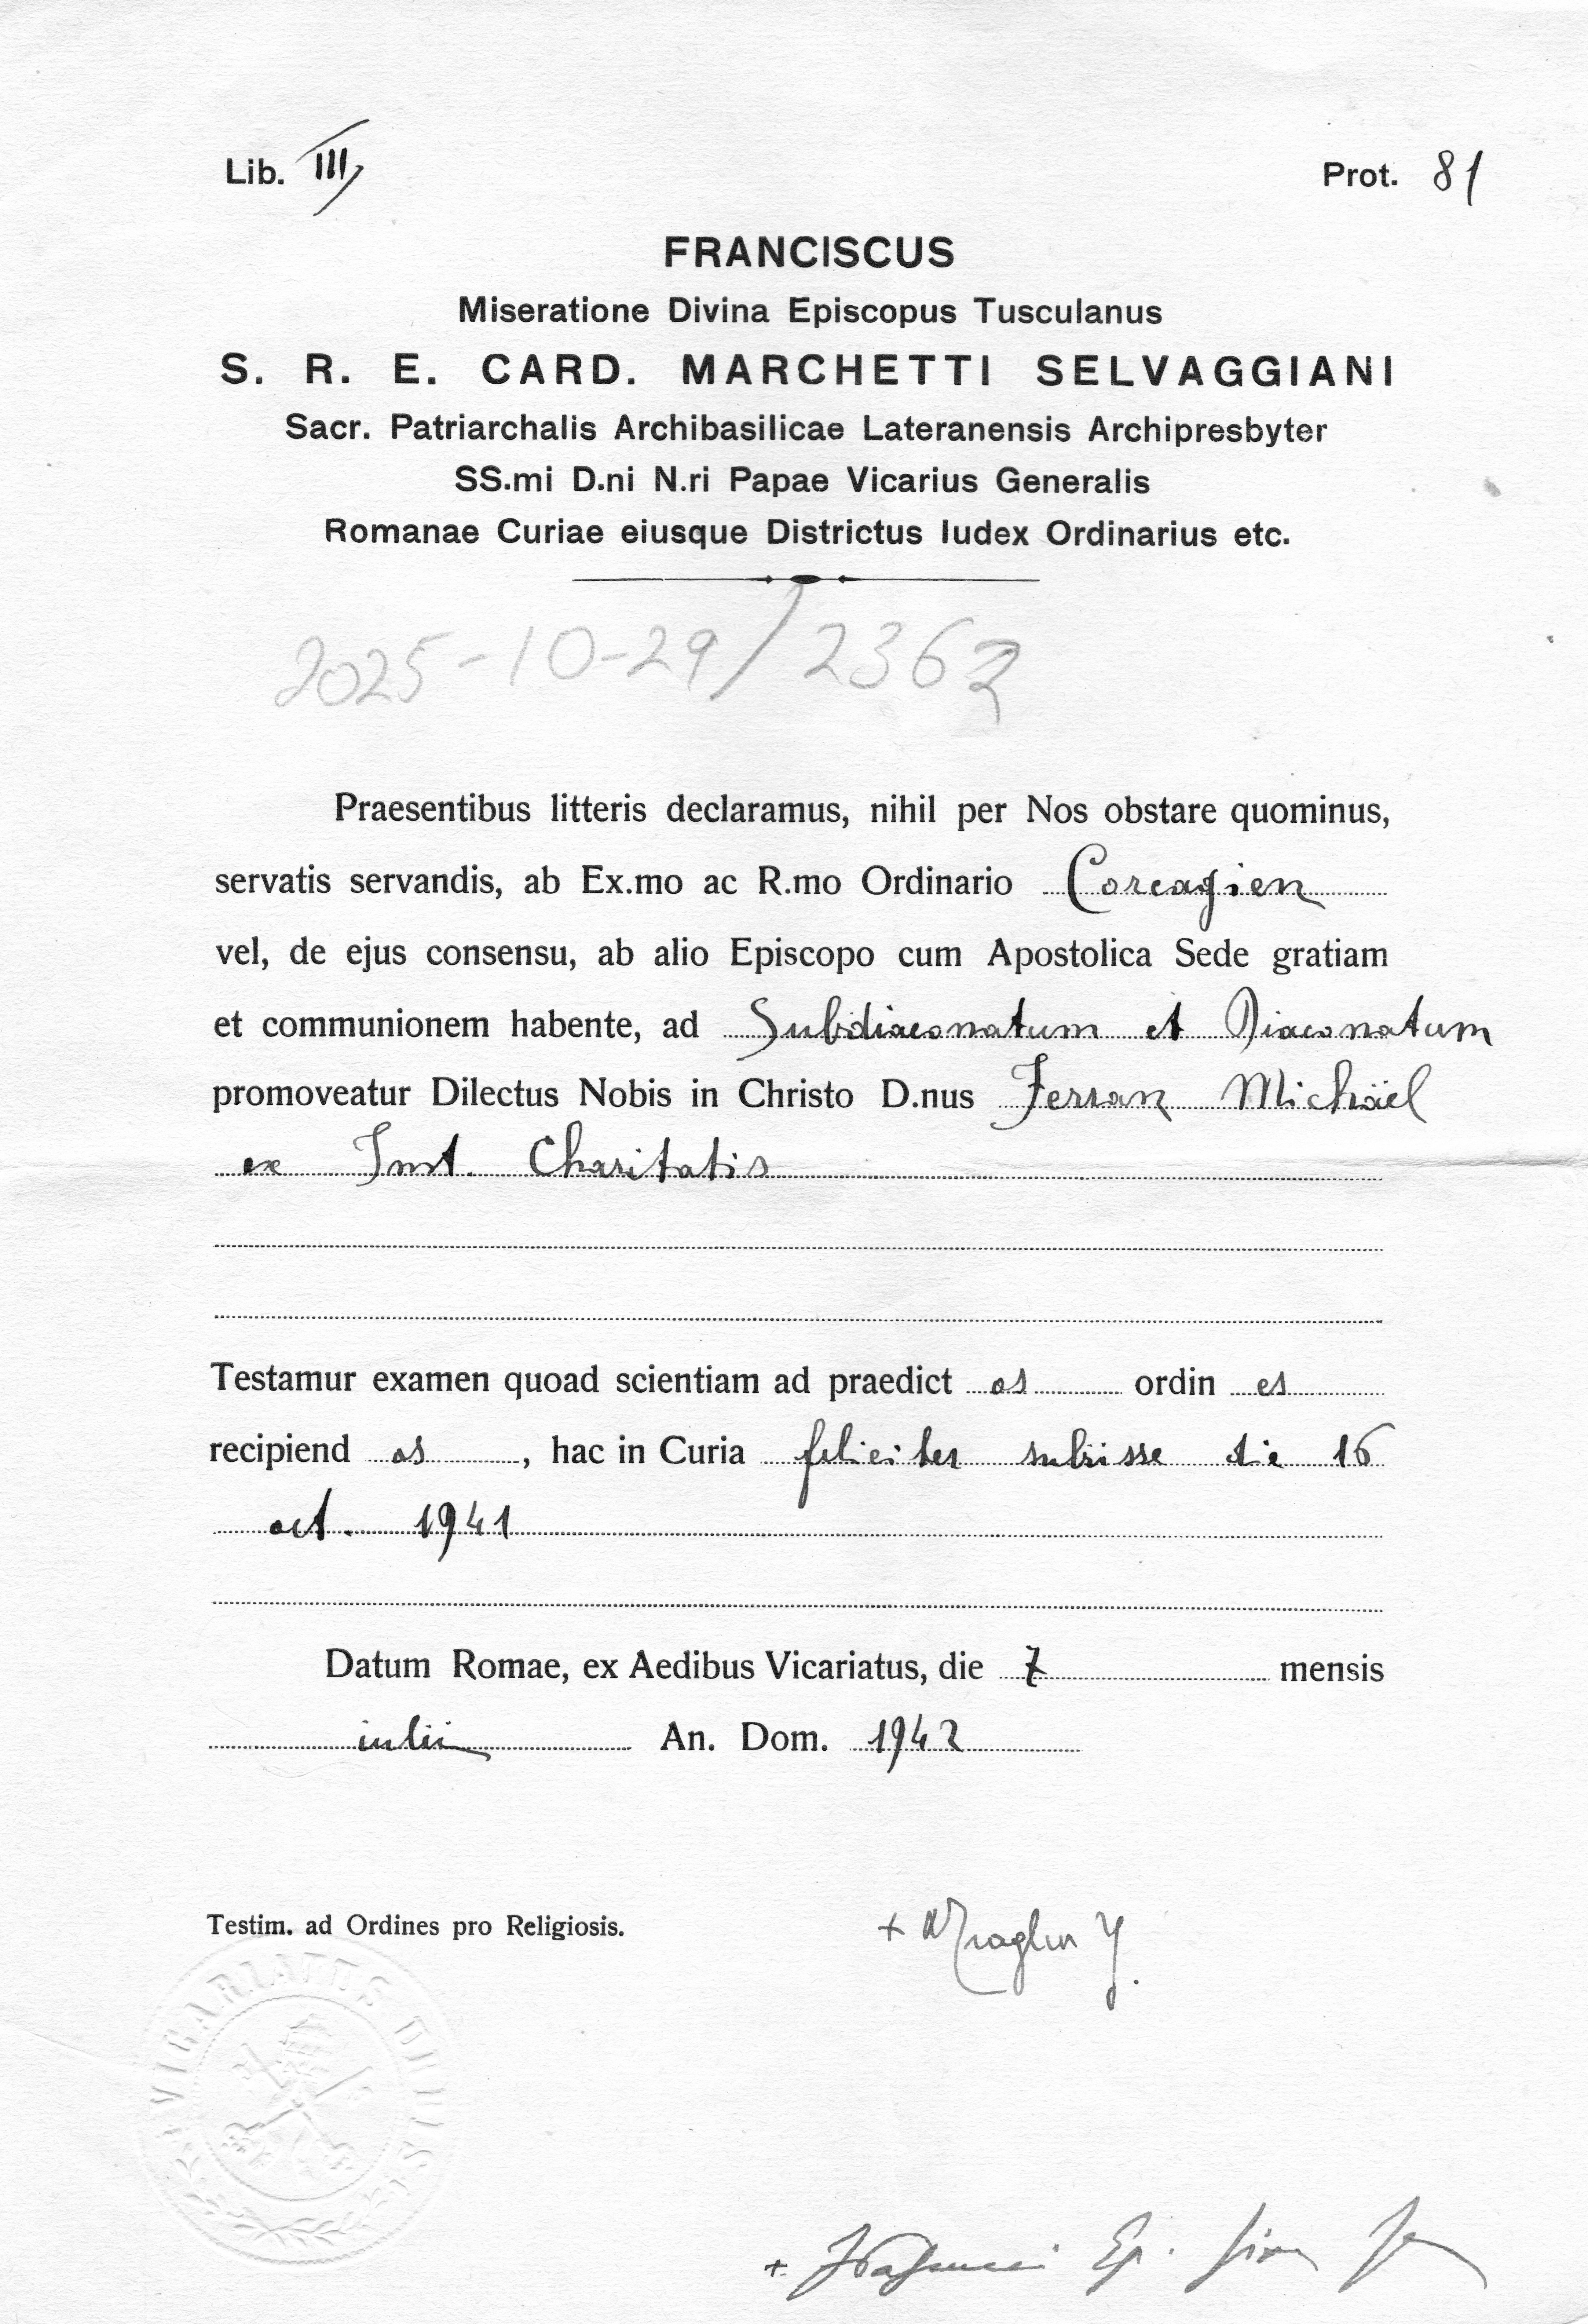 Lib. III
Prot. 81
FRANCISCUS
Miseratione Divina Episcopus Tusculanus
S. R. E. CARD. MARCHETTI SELVAGGIANI
Sacr. Patriarchalis Archibasilicae Lateranensis Archipresbyter
SS.mi D.ni N.ri Papae Vicarius Generalis
Romanae Curiae eiusque Districtus Iudex Ordinarius etc.
2025-10-29/2362
Praesentibus litteris declaramus, nihil per Nos obstare quominus,
servatis servandis, ab Ex.mo ac R.mo Ordinario Corcagien
vel, de ejus consensu, ab alio Episcopo cum Apostolica Sede gratiam
et communionem habente, ad Subdiaconatum et Diaconatum
promoveatur Dilectus Nobis in Christo D.nus Ferran Michäel
ex Inst. Charitatis
Testamur examen quoad scientiam ad praedict os ordin es
recipiend os , hac in Curia feliciter subisse die 16
oct. 1941
Datum Romae, ex Aedibus Vicariatus, die 7 mensis
iulii An. Dom. 1942
Testim. ad Ordines pro Religiosis.
VICARIATUS URBIS
+ Ep.